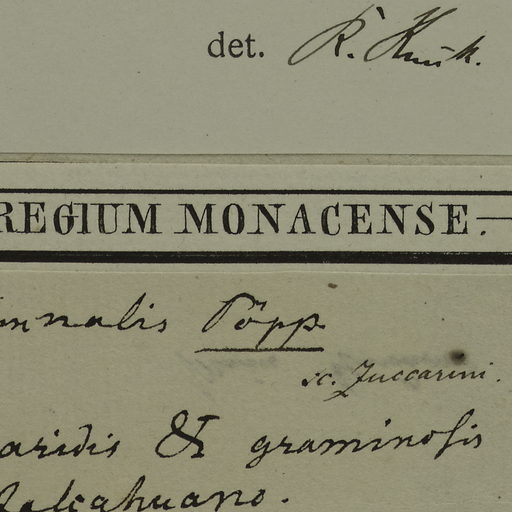 det. R. Knuth.
REGIUM MONACENSE.
nnalis Pöpp
sc. Zuccarini.
aridis & graminosis
Talcahuano.